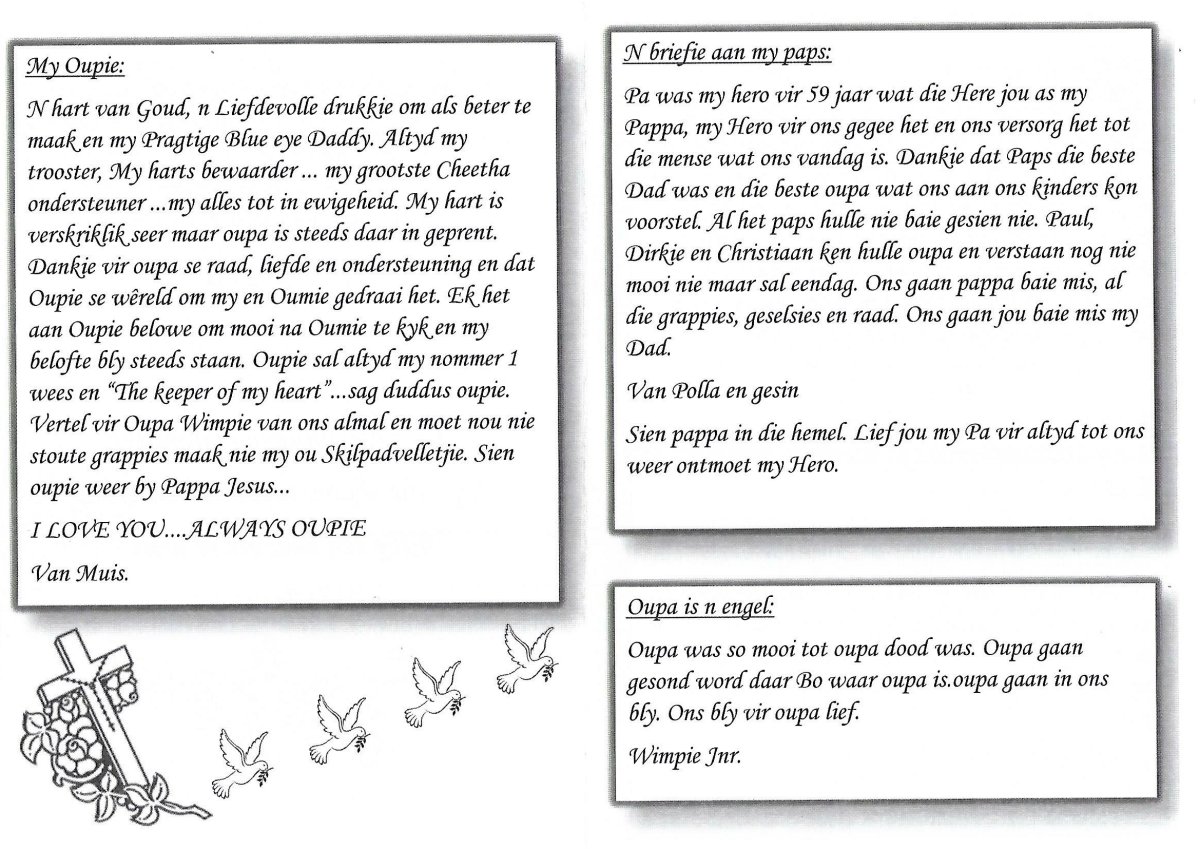 My Oupie:
N hart van Goud, n Liefdevolle drukkie om als beter te
maak en my Pragtige Blue eye Daddy. Altyd my
trooster, My harts bewaarder ... my grootste Cheetha
ondersteuner ...my alles tot in ewigeheid. My hart is
verskriklik seer maar oupa is steeds daar in geprent.
Dankie vir oupa se raad, liefde en ondersteuning en dat
Oupie se wêreld om my en Oumie gedraai het. Ek het
aan Oupie belowe om mooi na Oumie te kyk en my
belofte bly steeds staan. Oupie sal altyd my nommer 1
wees en “The keeper of my heart”...sag duddus oupie.
Vertel vir Oupa Wimpie van ons almal en moet nou nie
stoute grappies maak nie my ou Skilpadvelletjie. Sien
oupie weer by Pappa Jesus...
I LOVE YOU....ALWAYS OUPIE
Van Muis.
N briefie aan my paps:
Pa was my hero vir 59 jaar wat die Here jou as my
Pappa, my Hero vir ons gegee het en ons versorg het tot
die mense wat ons vandag is. Dankie dat Paps die beste
Dad was en die beste oupa wat ons aan ons kinders kon
voorstel. Al het paps hulle nie baie gesien nie. Paul,
Dirkie en Christiaan ken hulle oupa en verstaan nog nie
mooi nie maar sal eendag. Ons gaan pappa baie mis, al
die grappies, geselsies en raad. Ons gaan jou baie mis my
Dad.
Van Polla en gesin
Sien pappa in die hemel. Lief jou my Pa vir altyd tot ons
weer ontmoet my Hero.
Oupa is n engel:
Oupa was so mooi tot oupa dood was. Oupa gaan
gesond word daar Bo waar oupa is.oupa gaan in ons
bly. Ons bly vir oupa lief.
Wimpie Jnr.